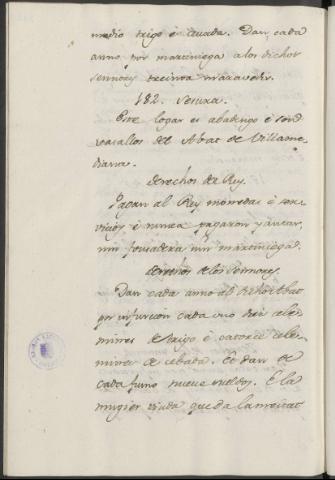 medio trigo é cevada. Dan cada
anno por martiniega a los dichos
sennores treinta maravedis.
182.
Este logar es abadengo é son
vasallos del Abat de Villame-
diana.
derechos del Rey.
Pagan al Rey monedas é ser-
vicios é nunca pagaron yantar,
nin fonsadera nin martiniega.
derechos de los sennores.
Dan cada anno al dicho Abat
por infurcion cada uno diez cele-
mines de trigo é catorce cele-
mines de cebada. Et dan de
cada fumo nueve sueldos. E la
mugier viuda que da la meitat